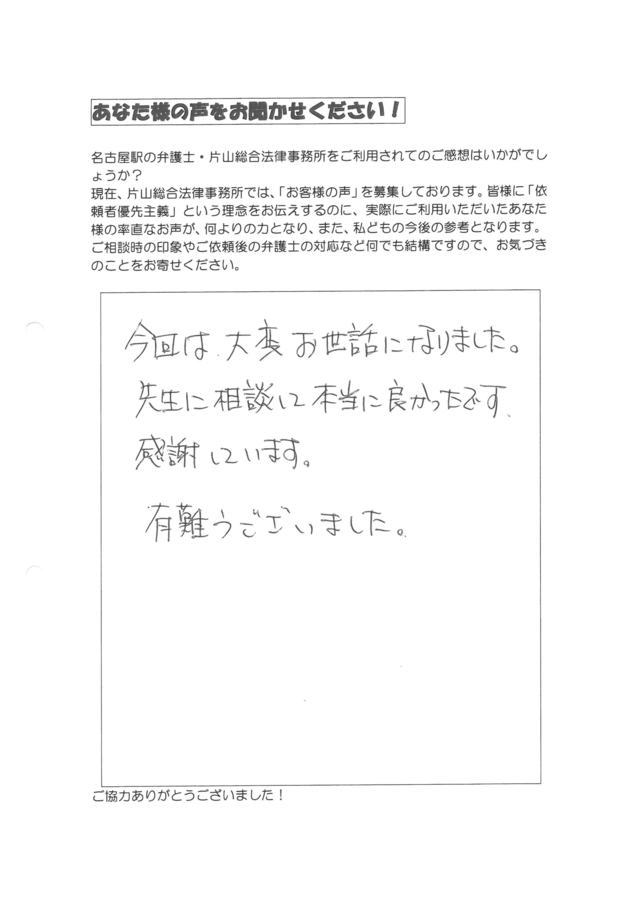 あなた様の声をお聞かせください！
名古屋駅の弁護士・片山総合法律事務所をご利用されてのご感想はいかがでし
ょうか？
現在、片山総合法律事務所では、「お客様の声」を募集しております。皆様に「依
頼者優先主義」という理念をお伝えするのに、実際にご利用いただいたあなた
様の率直なお声が、何よりの力となり、また、私どもの今後の参考となります。
ご相談時の印象やご依頼後の弁護士の対応など何でも結構ですので、お気づき
のことをお寄せください。
今回は、大変お世話になりました。
先生に相談して本当に良かったです、
感謝しています。
有難うございました。
ご協力ありがとうございました！